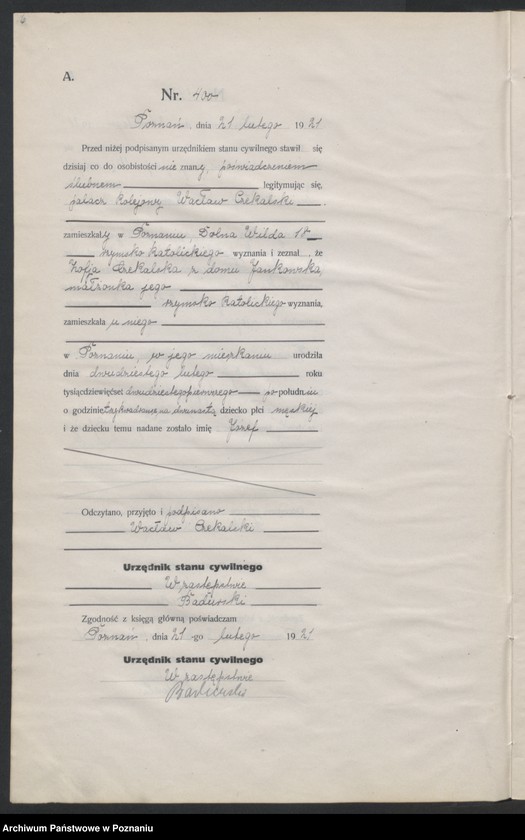 6
A.
Nr. 400
Poznań, dnia 21 lutego 1921
Przed niżej podpisanym urzędnikiem stanu cywilnego stawił się
dzisiaj co do osobistości nie znany, poświadczeniem
ślubnem legitymując się,
palacz kolejowy Wacław Czekalski
zamieszkały w Poznaniu, Dolna Wilda
rzymsko katolickiego wyznania i zeznał, że
Zofja Czekalska z domu Jankowska,
małżonka jego
rzymsko katolickiego wyznania,
zamieszkała u niego
w Poznaniu, w jego mieszkaniu urodziła
dnia dwudziestego lutego roku
tysiącdziewięćset dwudziestegopierwszego po południu
o godzinie trzy kwadranse na dwunastą dziecko płci męskiej
i że dziecku temu nadane zostało imię Józef
Odczytano, przyjęto i podpisano
Wacław Czekalski
Urzędnik stanu cywilnego
W zastępstwie
Zgodność z księgą główną poświadczam
Poznań, dnia 21-go lutego 1921
Urzędnik stanu cywilnego
W zastępstwie
Archiwum Państwowe w Poznaniu